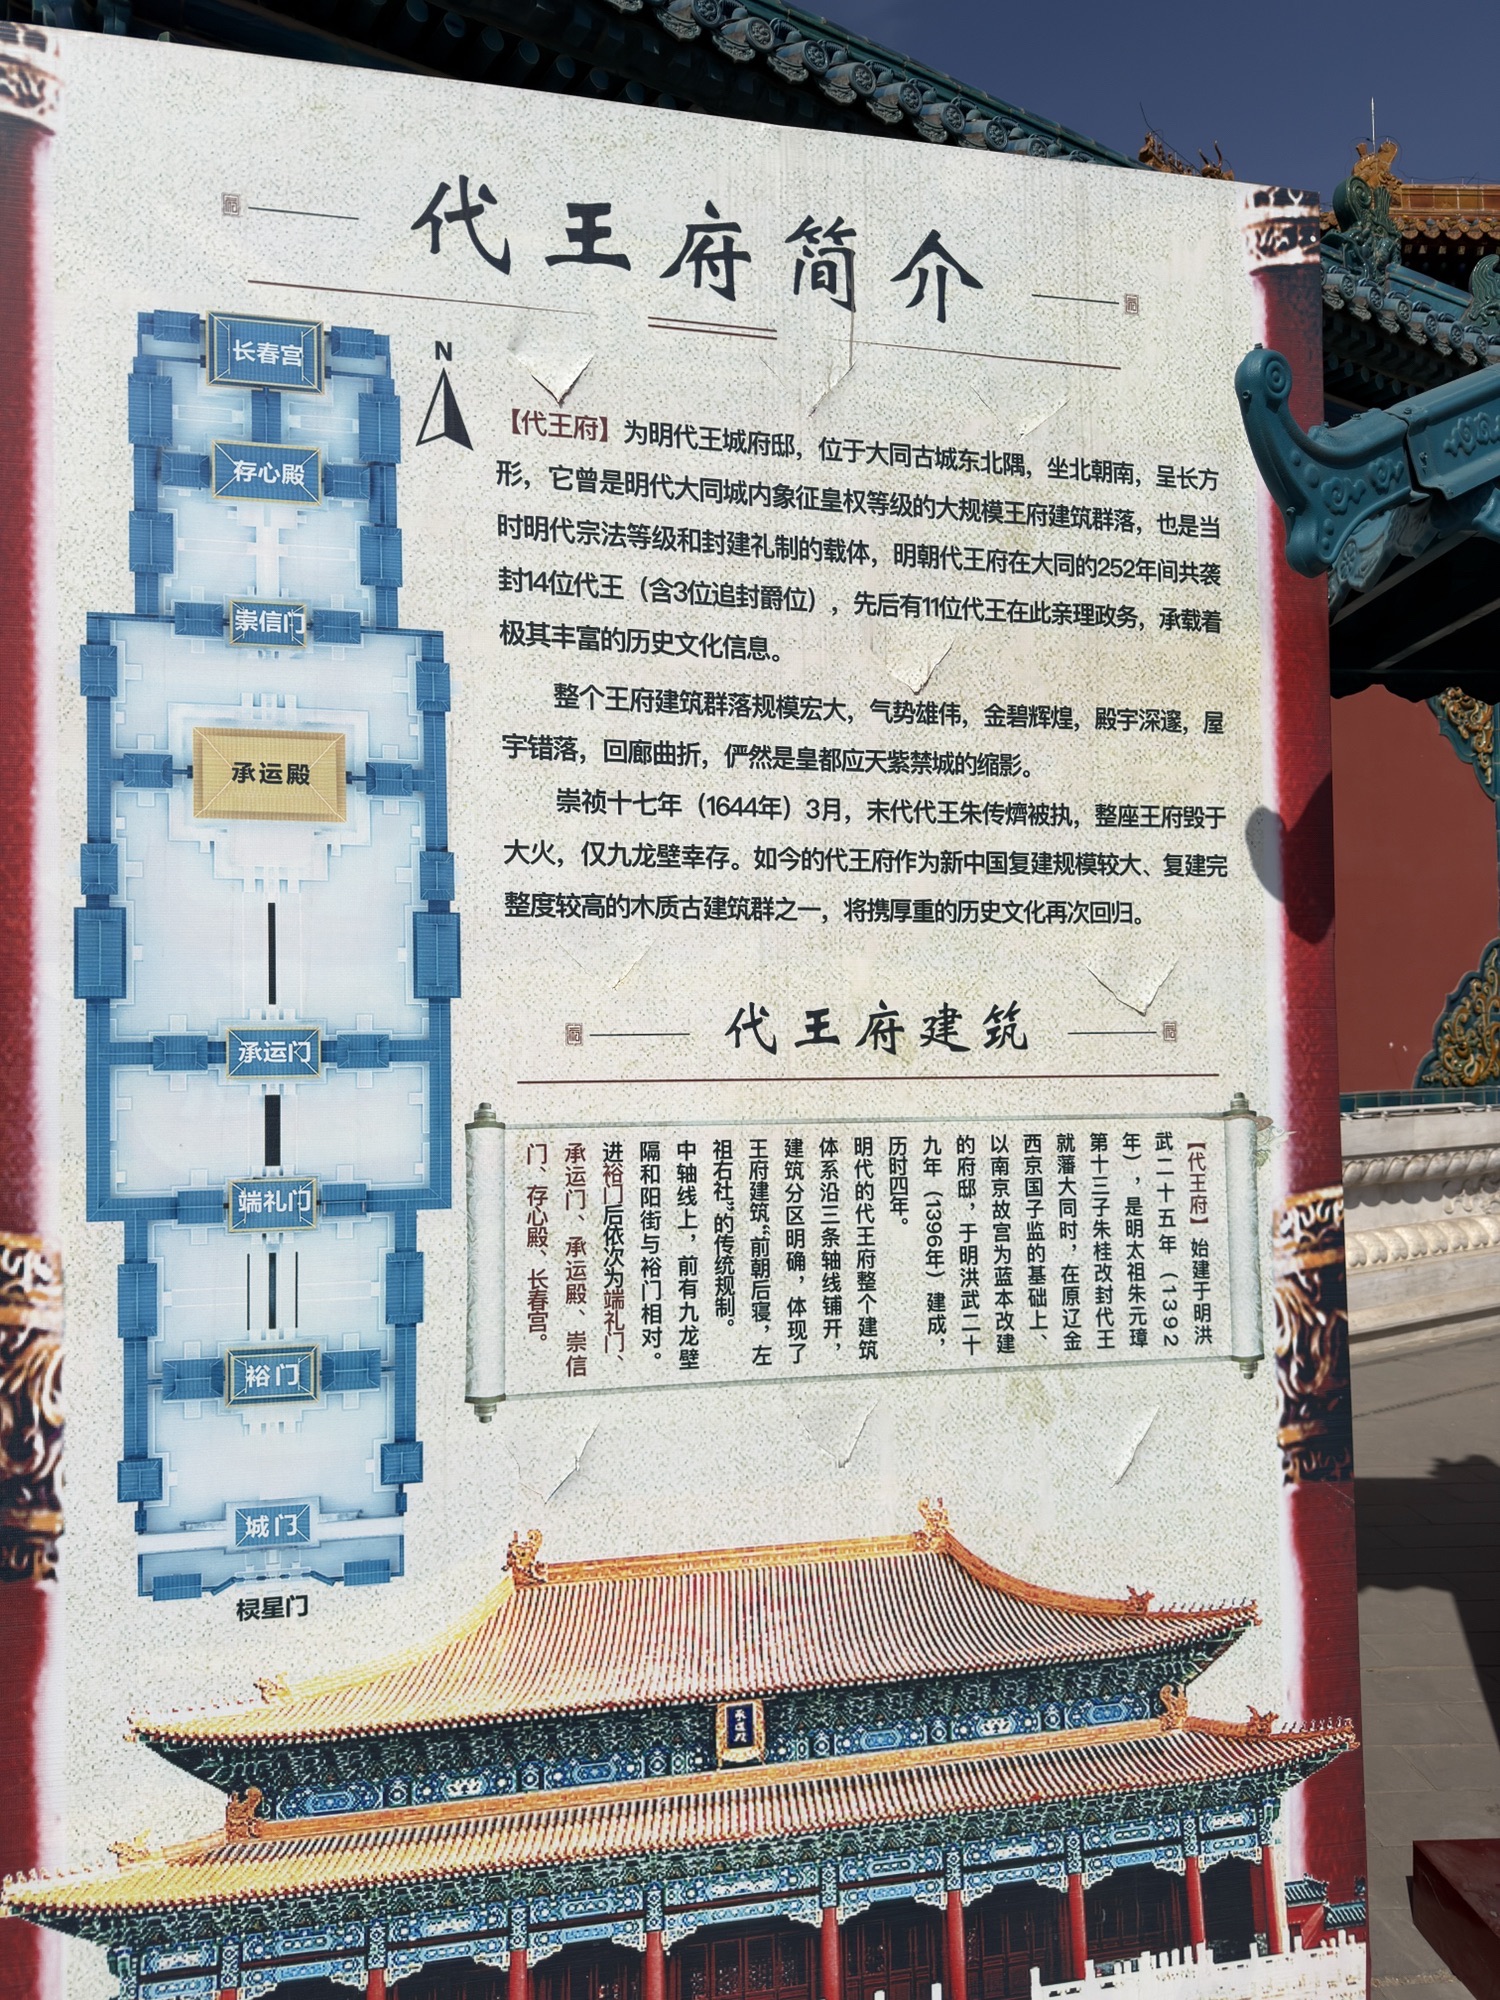 代王府简介
长春宫
存心殿
崇信门
承运殿
承运门
端礼门
裕门
城门
棂星门
N
【代王府】为明代王城府邸，位于大同古城东北隅，坐北朝南，呈长方
形，它曾是明代大同城内象征皇权等级的大规模王府建筑群落，也是当
时明代宗法等级和封建礼制的载体，明朝代王府在大同的252年间共袭
封14位代王（含3位追封爵位），先后有11位代王在此亲理政务，承载着
极其丰富的历史文化信息。
整个王府建筑群落规模宏大，气势雄伟，金碧辉煌，殿宇深邃，屋
宇错落，回廊曲折，俨然是皇都应天紫禁城的缩影。
崇祯十七年（1644年）3月，末代代王朱传㸄被执，整座王府毁于
大火，仅九龙壁幸存。如今的代王府作为新中国复建规模较大、复建完
整度较高的木质古建筑群之一，将携厚重的历史文化再次回归。
代王府建筑
【代王府】始建于明洪
武二十五年（1392
年），是明太祖朱元璋
第十三子朱桂改封代王
就藩大同时，在原辽金
西京国子监的基础上、
以南京故宫为蓝本改建
的府邸，于明洪武二十
九年（1396年）建成，
历时四年。
明代的代王府整个建筑
体系沿三条轴线铺开，
建筑分区明确，体现了
王府建筑“前朝后寝，左
祖右社”的传统规制。
中轴线上，前有九龙壁
隔和阳街与裕门相对。
进裕门后依次为端礼门、
承运门、承运殿、崇信
门、存心殿、长春宫。
承运殿